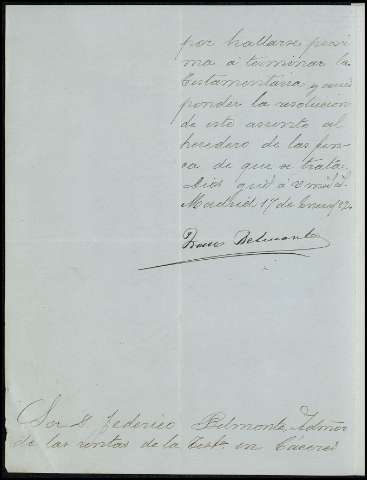 por hallarse proxi
ma á terminar la
Testamentaria y corres
ponder la resolucion
de este asunto al
heredero de las fin-
ca de que se trata.
Dios gue á V m. a.
Madrid 17 de Enero
Belmonte
Sor D. Federico Belmonte, Admor
de las rentas de la Testa en Cáceres